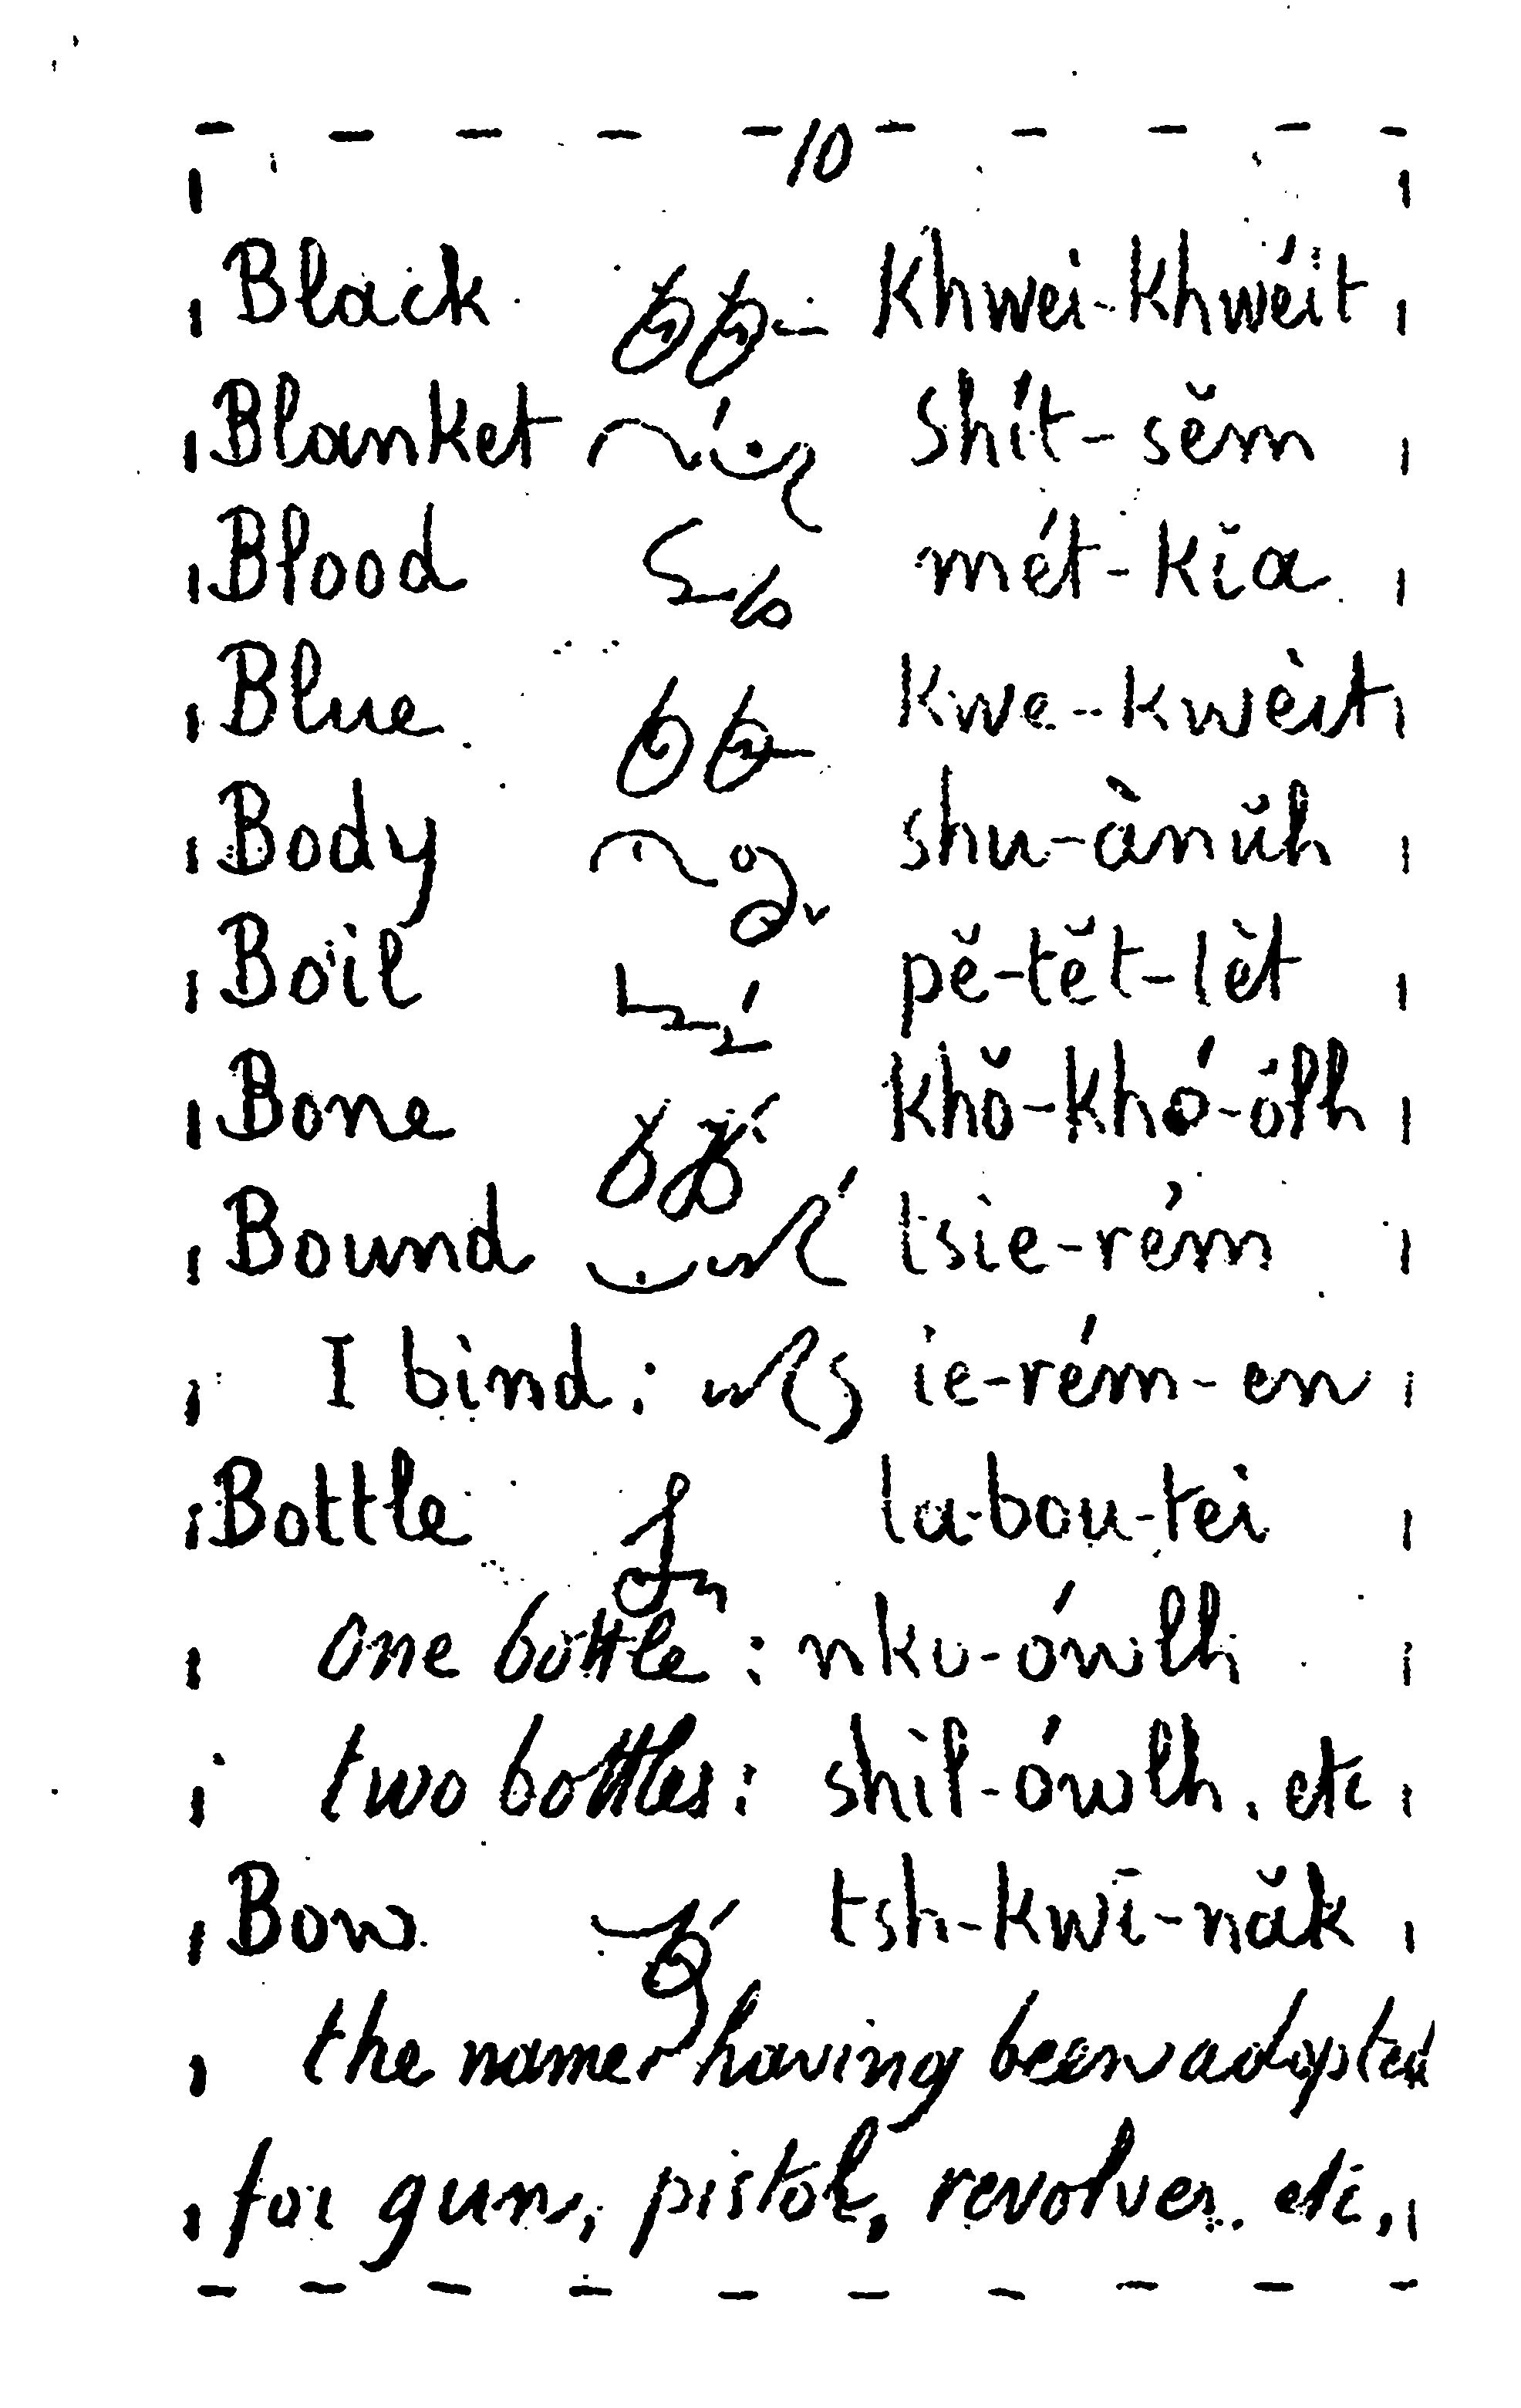 10
Black khwei-khwéit
Blanket shít-sĕm
Blood mét-kĭa
Blue kwe-kwèit
Body shu-ànŭh
Boil pĕ-tĕt-lèt
Bone khŏ-khó-ólh
Bound tsie-rém
I bind: ie-rém-en
Bottle la-bou-tei
one bottle: nku-ówlh
two bottles: shil-ówlh. etc
Bow tsh-kwī-năk
the name having been adopted
for gun, pistol, revolver. etc.